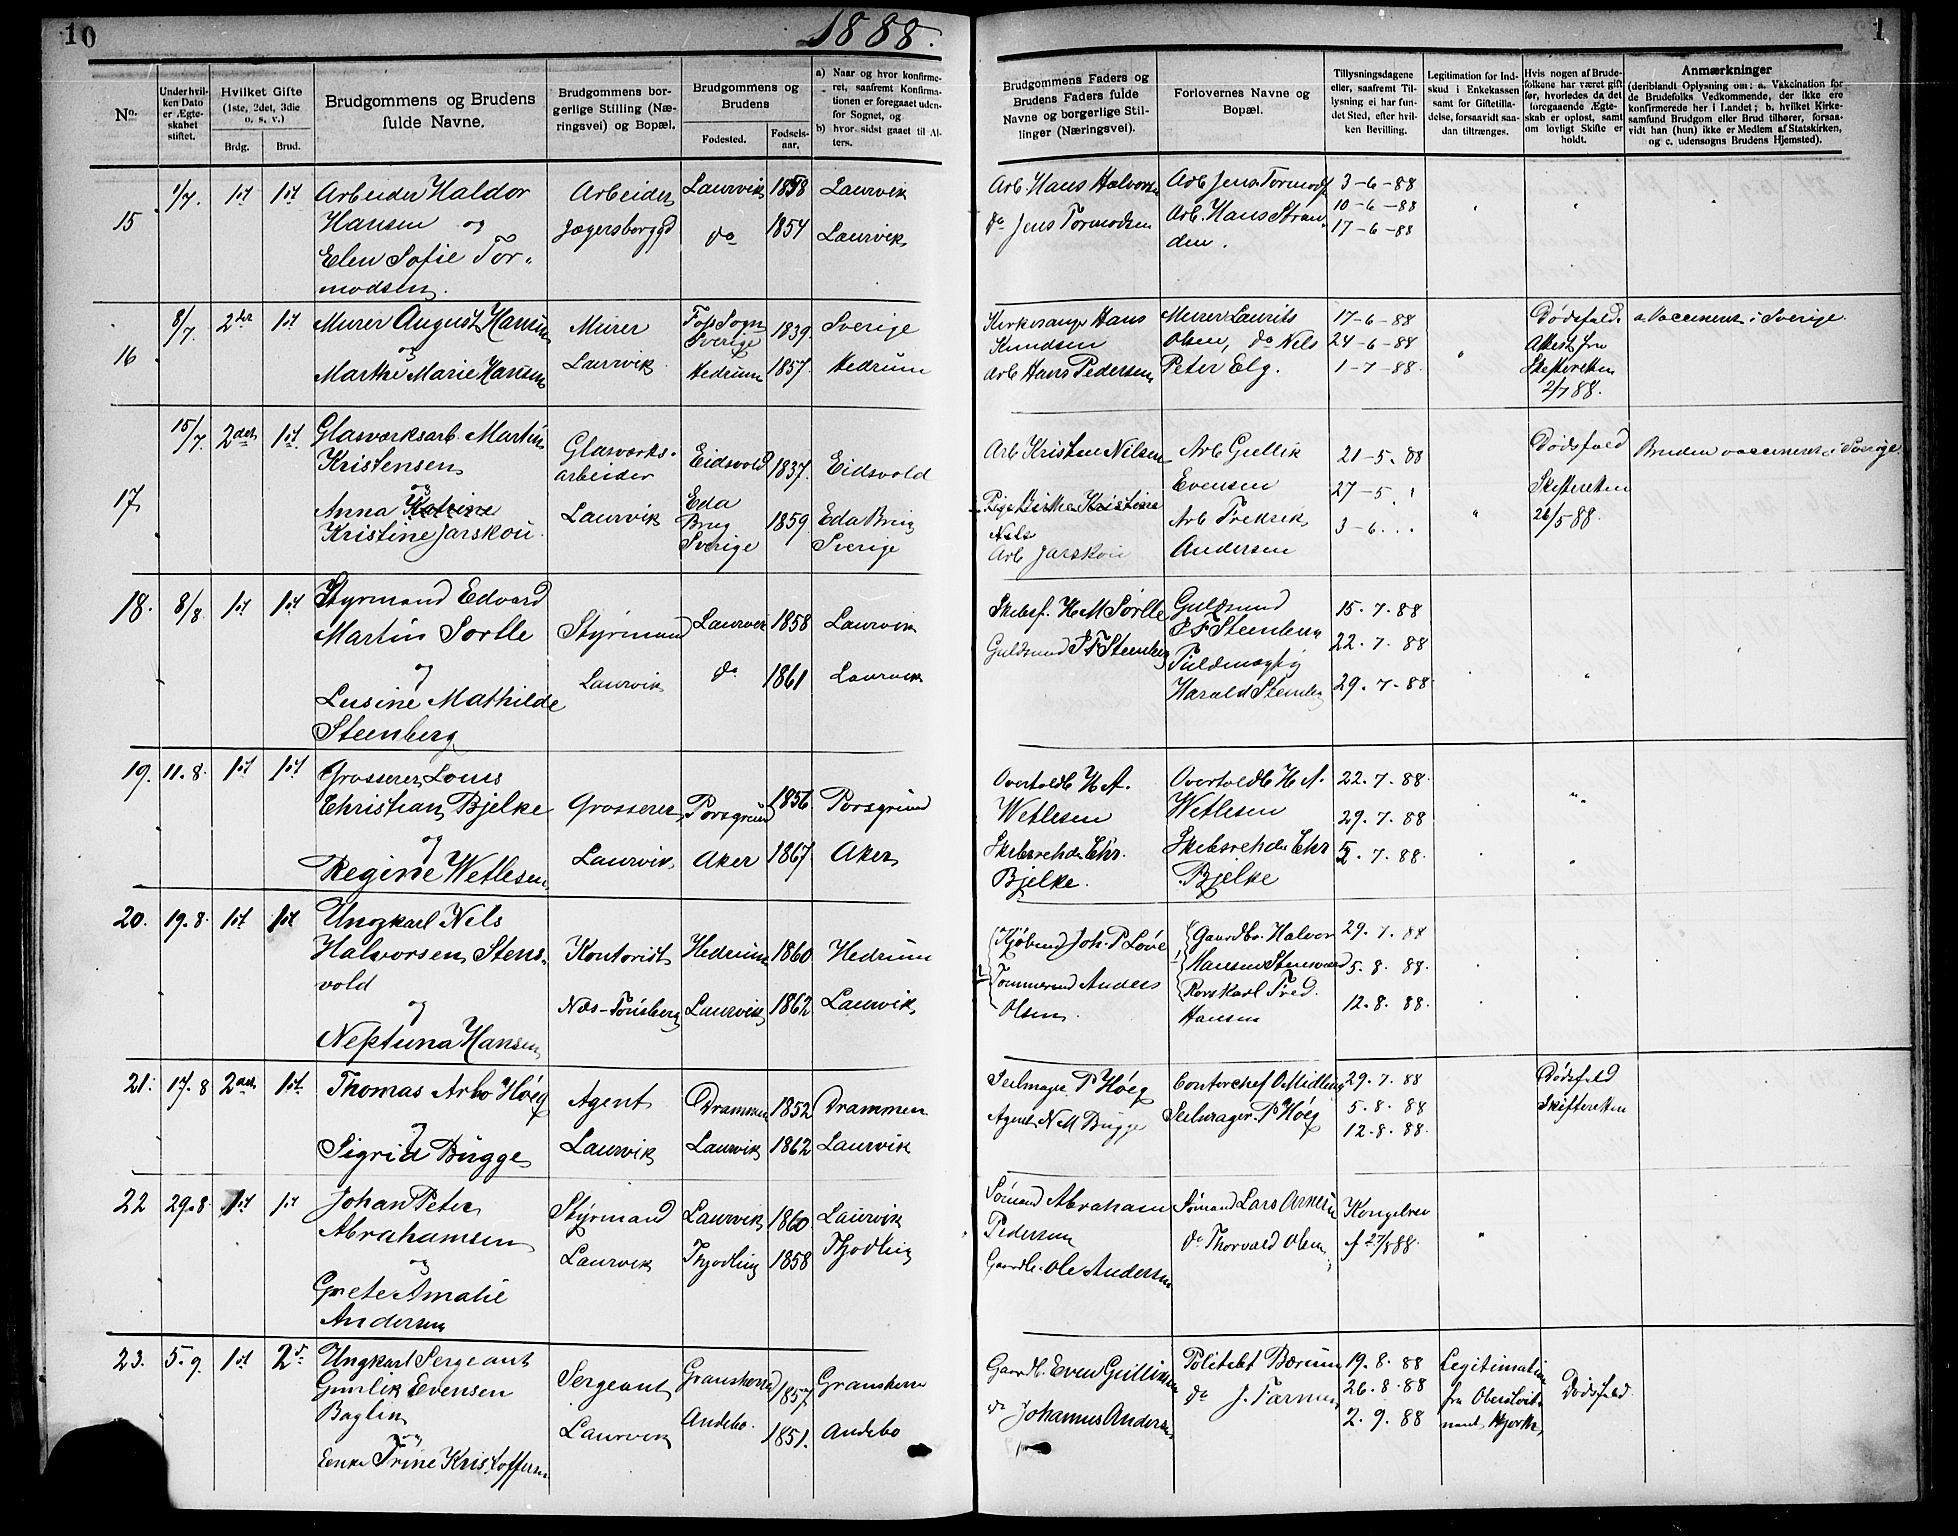 10
1888.
1
No.
Under hvil-
ken Dato
er Ægte-
skabet
stiftet.
Hvilket Gifte
(1ste, 2det, 3die
o. s. v.)
Brdg.
Brud.
Brudgommens og Brudens
fulde Navne.
Brudgommens bor-
gerlige Stilling (Næ-
ringsvei) og Bopæl.
Brudgommens og
Brudens
Fødested.
Fødsels-
aar.
a) Naar og hvor konfirme-
ret, saafremt Konfirma-
tionen er foregaaet uden-
for Sognet, og
b) hvor sidst gaaet til Al-
ters.
Brudgommens Faders og
Brudens Faders fulde
Navne og borgerlige Stil-
linger (Næringsvei).
Forlovernes Navne og
Bopæl.
Tillysningsdagene
eller, saafremt Til-
lysning ei har fun-
det Sted, efter hvil-
ken Bevilling.
Legitimation for Ind-
skud i Enkekassen
samt for Giftetilla-
delse, forsaavidt saa-
dan tiltrænges.
Hvis nogen af Brude-
folkene har været gift
før, hvorledes da det
foregaaende Ægte-
skab er opløst, samt
om lovligt Skifte er
holdt.
Anmærkninger
(deriblandt Oplysning om: a. Vakcination for
de Brudefolks Vedkommende, der ikke ere
konfirmerede her i Landet; b. hvilket Kirke-
samfund Brudgom eller Brud tilhører, forsaa-
vidt han (hun) ikke er Medlem af Statskirken,
og c. udensogns Brudens Hjemsted).
15
1/7. 1st 1st
Arbeider Haldor
Hansen og
Elen Sofie Tor-
modsen.
Arbeider
Jægersborggd
Laurvik 1858 Laurvik
do 1854 Laurvik
Arb Hans Halvorsen
do Jens Tormodsen
Arb Jens Tormods
Arb. Hans Stran-
den.
3-6-88
10-6-88
17-6-88
16
8/7. 2det 1st
Murer August Hansen
og
Marthe Marie Hansen
Murer
Laurvik
Foss Sogn
Sverige 1839. Sverige
Hedrum 1857. Hedrum
Kirkesanger Hans
Knudsen
Arb Hans Pedersen
Murer Laurits
Olsen, do Nels
Peter Elg.
17-6-88
24-6-88
1-7-88.
Dødsfald.
Attest fra
Skifteretten
2/7 88.
a Vaccineret i Sverige.
17
15/7. 2det 1st.
Glasværksarb. Martin
Kristensen
og
Anna Katrine
Kristine Jarskou.
Glasværks-
arbeider
Laurvik
Eidsvold 1837. Eidsvold
Eda
Brug
Sverige
1859.
Eda Brug
Sverige
Arb Kristen Nilsen
Pige Birthe Kristine
Nels
Arb Jarskou
Arb Gullik
Evensen
Arb Fredrik
Andersen
21-5. 88
27-5.
3-6...
Dødsfald
Skifteretten
26/5 88.
Bruden vaccineret i Sverige.
18. 8/8 1st 1st
Styrmand Edvard
Martin Sørlle
og
Lusine Mathilde
Steenberg
Styrmand
Laurvik
Laurvik 1858 Laurvik
do 1861 Laurvik
Skibsf. H M Sørlle
Guldsmed P F Steenberg
Guldsmed
P F Steenberg
Fuldmægtig
Harald Steenberg
15. 7. 88
22. 7. 88
29. 7. 88.
19. 11. 8. 1st 1st
Grosserer Louis
Christian Bjelke
og
Regine Wetlesen
Grosserer
Laurvik
Porsgrund 1856 Porsgrund
Aker 1867. Aker
Overtoldb H A.
Wetlesen
Skibsrehder Chr.
Bjelke.
Overtoldb H A.
Wetlesen
Skibsrehder Chr
Bjelke
22. 7. 88.
29. 7. 88
5. 7. 88.
20. 19. 8. 1st 1st
Ungkarl Nels
Halvorsen Stens-
vold
og
Neptuna Hansen
Kontorist
Næs-Tønsberg
Hedrum 1860 Hedrum
Laurvik 1862 Laurvik
Kjøbmd Joh. P Løve
Tømmermd Anders
Olsen.
Gaardbr. Halvor
Hansen Stensvold
Rorskarl Fred.
Hansen
29. 7. 88
5. 8. 88.
12. 8. 88.
21. 17. 8 2det 1st
Thomas Arbo Høeg
og
Sigrid Bugge
Agent
Laurvik
Drammen 1852 Drammen
Laurvik 1862 Laurvik
Seilmager P Høeg
Agent N M Bugge
Contorchef O Midling
Seilmager. P Høeg
29. 7. 88
5. 8. 88
12. 8. 88.
Dødsfald
Skifteretten
22 29. 8. 1st 1st
Johan Peter
Abrahamsen
og
Grete Amalie
Andersen
Styrmand
Laurvik
Laurvik 1860. Laurvik
Thjodling 1858 Thjodling
Sømand Abraham
Pedersen
Gaardb. Ole Andersen
Sømand Lars Arnesen
do Thorvald Olsen
Kongebrev
af 27/8 88.
23. 5. 9. 1st 2d
Ungkarl Sergeant
Gunlik Evensen
Baglin
og
Enke Trine Kristoffersen
Sergeant
Laurvik
Gransherred 1857. Gransherre
Andebo. 1851. Andebo
Gaardb. Even Gullixen
do Johannes Andersen
Politibt Bærum
do J. Farmen
19. 8. 88
26. 8. 88
2. 9. 88
Legitimation
fra Oberstløit-
nant Hjorth
Dødsfald.